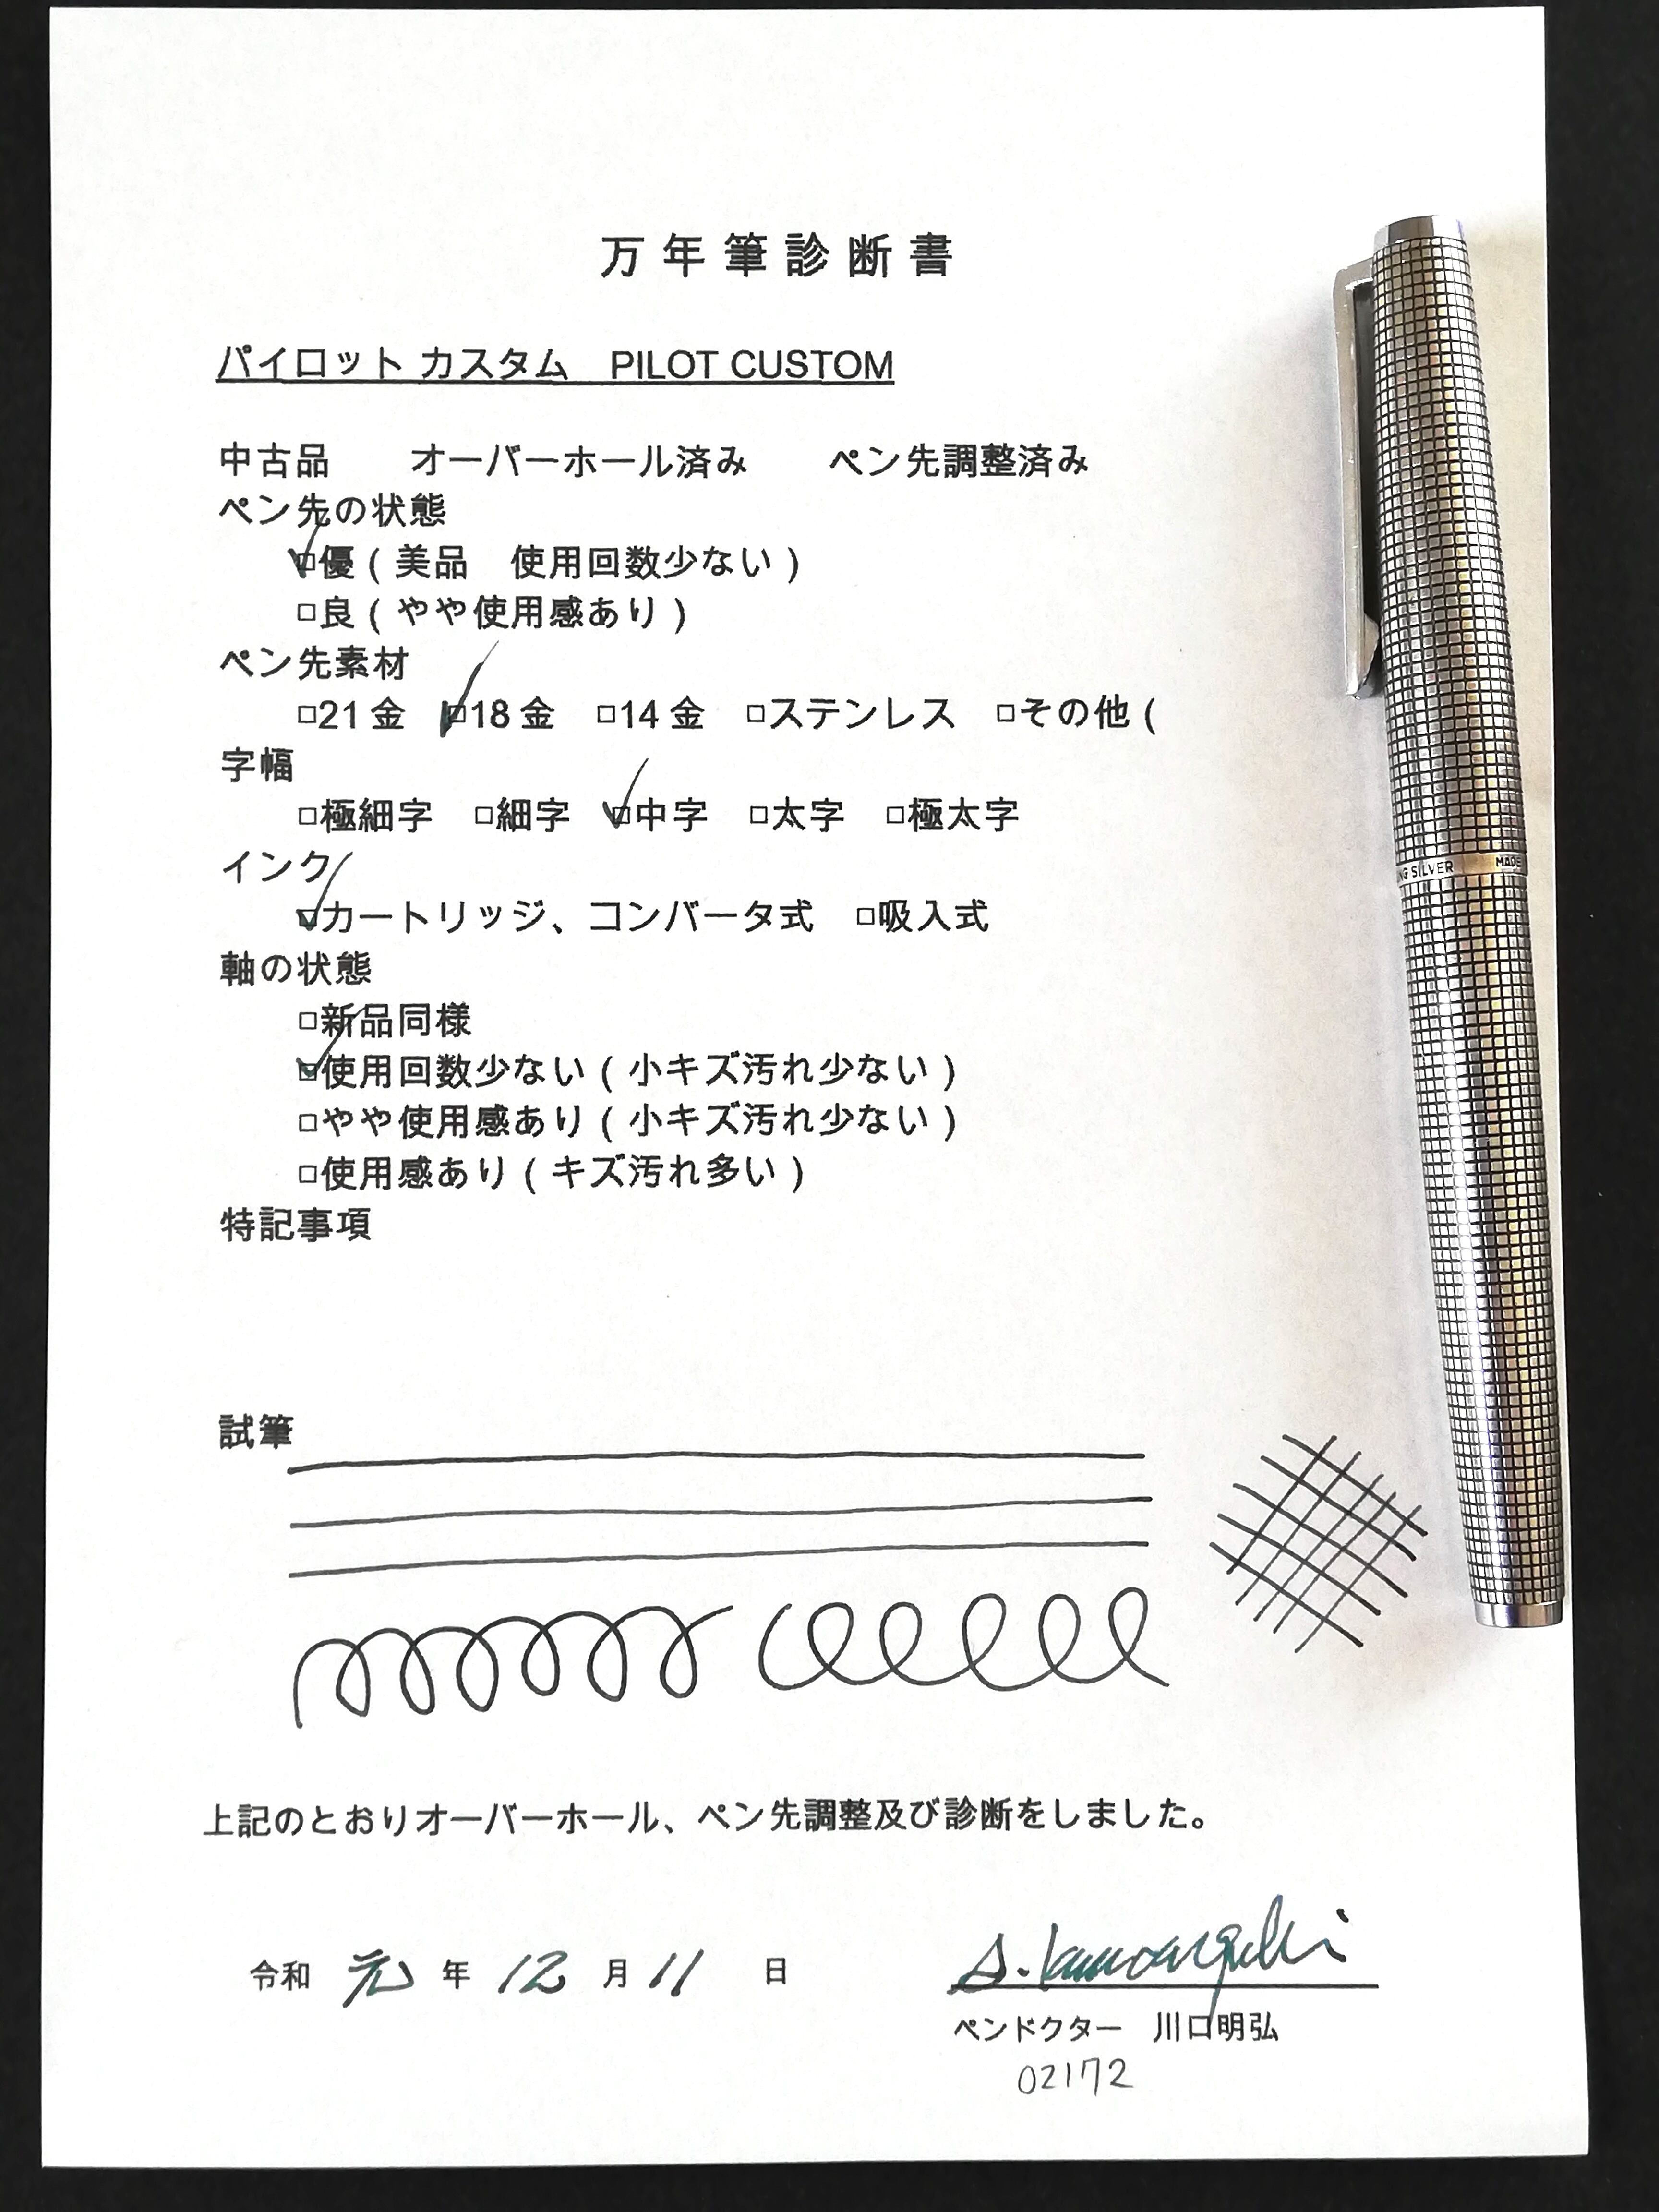 万年筆診断書
パイロット カスタム　PILOT CUSTOM
中古品　　オーバーホール済み　　ペン先調整済み
ペン先の状態
☑優（美品　使用回数少ない）
□良（やや使用感あり）
ペン先素材
□21金　☑18金　□14金　□ステンレス　□その他（
字幅
□極細字　□細字　☑中字　□太字　□極太字
インク
☑カートリッジ、コンバータ式　□吸入式
軸の状態
□新品同様
☑使用回数少ない（小キズ汚れ少ない）
□やや使用感あり（小キズ汚れ少ない）
□使用感あり（キズ汚れ多い）
特記事項
試筆
上記のとおりオーバーホール、ペン先調整及び診断をしました。
令和 元 年 12 月 11 日
ペンドクター　川口明弘
02172
NG SILVER MADE